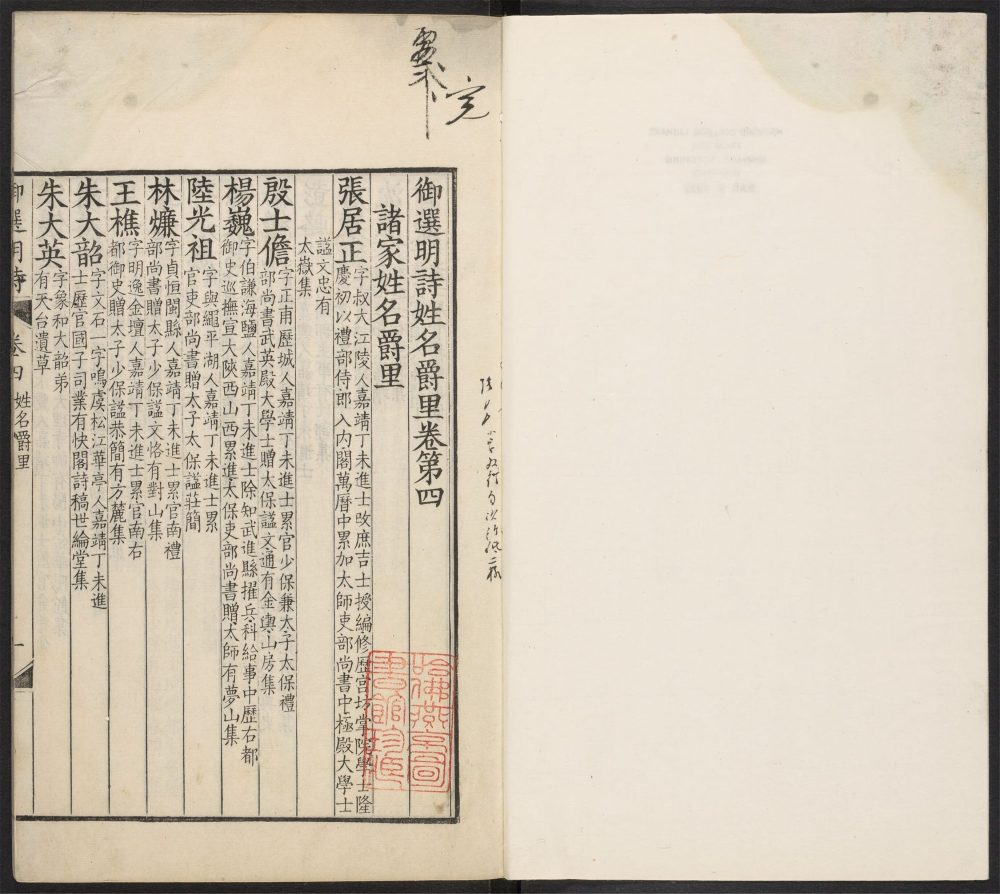 完
御選明詩姓名爵里卷第四
諸家姓名爵里
張居正字叔大江陵人嘉靖丁未進士改庶吉士授編修歷官坊掌院學士隆
慶初以禮部侍郎入内閣萬曆中累加太師吏部尚書中極殿大學士
諡文忠有
太嶽集
殷士儋字正甫歷城人嘉靖丁未進士累官少保兼太子太保禮
部尚書武英殿大學士贈太保諡文通有金輿山房集
楊巍字伯謙海鹽人嘉靖丁未進士除知武進縣擢兵科給事中歷右都
御史巡撫宣大陝西山西累進太保吏部尚書贈太師有夢山集
陸光祖字與繩平湖人嘉靖丁未進士累
官吏部尚書贈太子太保諡莊簡
林㷆字貞恒閩縣人嘉靖丁未進士累官南禮
部尚書贈太子少保諡文恪有對山集
王樵字明逸金壇人嘉靖丁未進士累官南右
都御史贈太子少保諡恭簡有方麓集
朱大韶字文石一字鳴虞松江華亭人嘉靖丁未進
士歷官國子司業有快閣詩稿世綸堂集
朱大英字象和大韶弟
有天台遺草
御選明詩 卷四 姓名爵里 一
哈佛燕京圖
書館珍藏